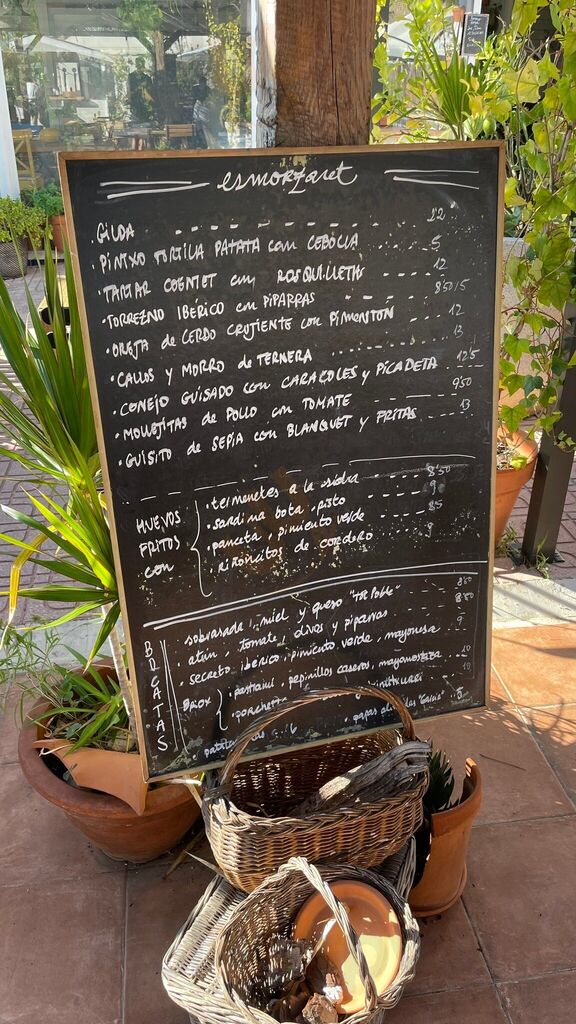 esmorzaret
· GILDA - - - - - - - - 2'2
· PINTXO TORTILLA PATATA con CEBOLLA . . . . 5
· TARTAR COENTET en ROSQUILLETAS - - - - 12
· TORREZNO IBÉRICO en PIPARRAS - - - - 8'50/5
· OREJA de CERDO CRUJIENTE con PIMENTON . . . . 12
· CALLOS y MORRO de TERNERA . . . . . . . . 13
· CONEJO GUISADO con CARACOLES y PICADETA . . . 12'5
· MOLLEJITAS de POLLO en TOMATE - - - - 9'50
· GUISITO de SEPIA con BLANQUET y FRITAS . . . 13
HUEVOS FRITOS con
· ternenetes a la sidra - - - - 8'50
· sardina bota, pisto - - - - 9
· panceta, pimiento verde - - - - 8'5
· riñoncitos de cordero - - - - 9
BOCATAS
· sobrasada, miel y queso
· atún, tomate, olivas y piparras
· secreto ibérico, pimiento verde, mayonesa 9
BRIOX
· pastrami, pepinillos caseros, 10
· porchetta 10
· patatas
· papas